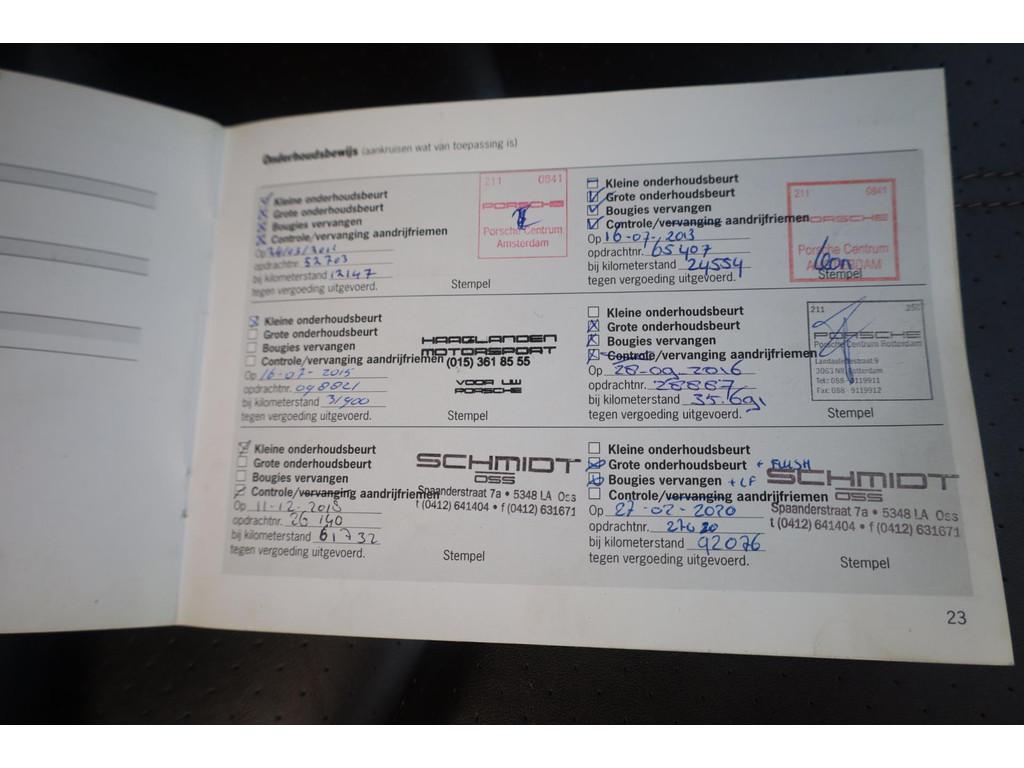 Onderhoudsbewijs (aankruisen wat van toepassing is)
Kleine onderhoudsbeurt
Grote onderhoudsbeurt
Bougies vervangen
Controle/vervanging aandrijfriemen
Op
opdrachtnr. 52703
bij kilometerstand 12147
tegen vergoeding uitgevoerd.
Stempel
211 0841
PORSCHE
Porsche Centrum
Amsterdam
Kleine onderhoudsbeurt
Grote onderhoudsbeurt
Bougies vervangen
Controle/vervanging aandrijfriemen
Op 16-07-2013
opdrachtnr. 65407
bij kilometerstand 24554
tegen vergoeding uitgevoerd.
Stempel
211 0841
PORSCHE
Porsche Centrum
AMSTERDAM
Kleine onderhoudsbeurt
Grote onderhoudsbeurt
Bougies vervangen
Controle/vervanging aandrijfriemen
Op 16-07-2015
opdrachtnr. 098821
bij kilometerstand 31900
tegen vergoeding uitgevoerd.
Stempel
HAAGLANDEN
MOTORSPORT
(015) 361 85 55
VOOR UW
PORSCHE
Kleine onderhoudsbeurt
Grote onderhoudsbeurt
Bougies vervangen
Controle/vervanging aandrijfriemen
Op 28-09-2016
opdrachtnr. 28887
bij kilometerstand 35.691
tegen vergoeding uitgevoerd.
Stempel
211
PORSCHE
Porsche Centrum Rotterdam
3063 NR Rotterdam
Tel.: 088 - 9119911
Fax: 088 - 9119912
Kleine onderhoudsbeurt
Grote onderhoudsbeurt
Bougies vervangen
Controle/vervanging aandrijfriemen
Op 11-12-2018
opdrachtnr. 26140
bij kilometerstand 61732
tegen vergoeding uitgevoerd.
Stempel
SCHMIDT
OSS
Spaanderstraat 7a • 5348 LA Oss
t (0412) 641404 • f (0412) 631671
Kleine onderhoudsbeurt
Grote onderhoudsbeurt + FLUSH
Bougies vervangen + LF
Controle/vervanging aandrijfriemen
Op 27-02-2020
opdrachtnr. 27620
bij kilometerstand 92076
tegen vergoeding uitgevoerd.
Stempel
SCHMIDT
OSS
Spaanderstraat 7a • 5348 LA Oss
t (0412) 641404 • f (0412) 631671
23